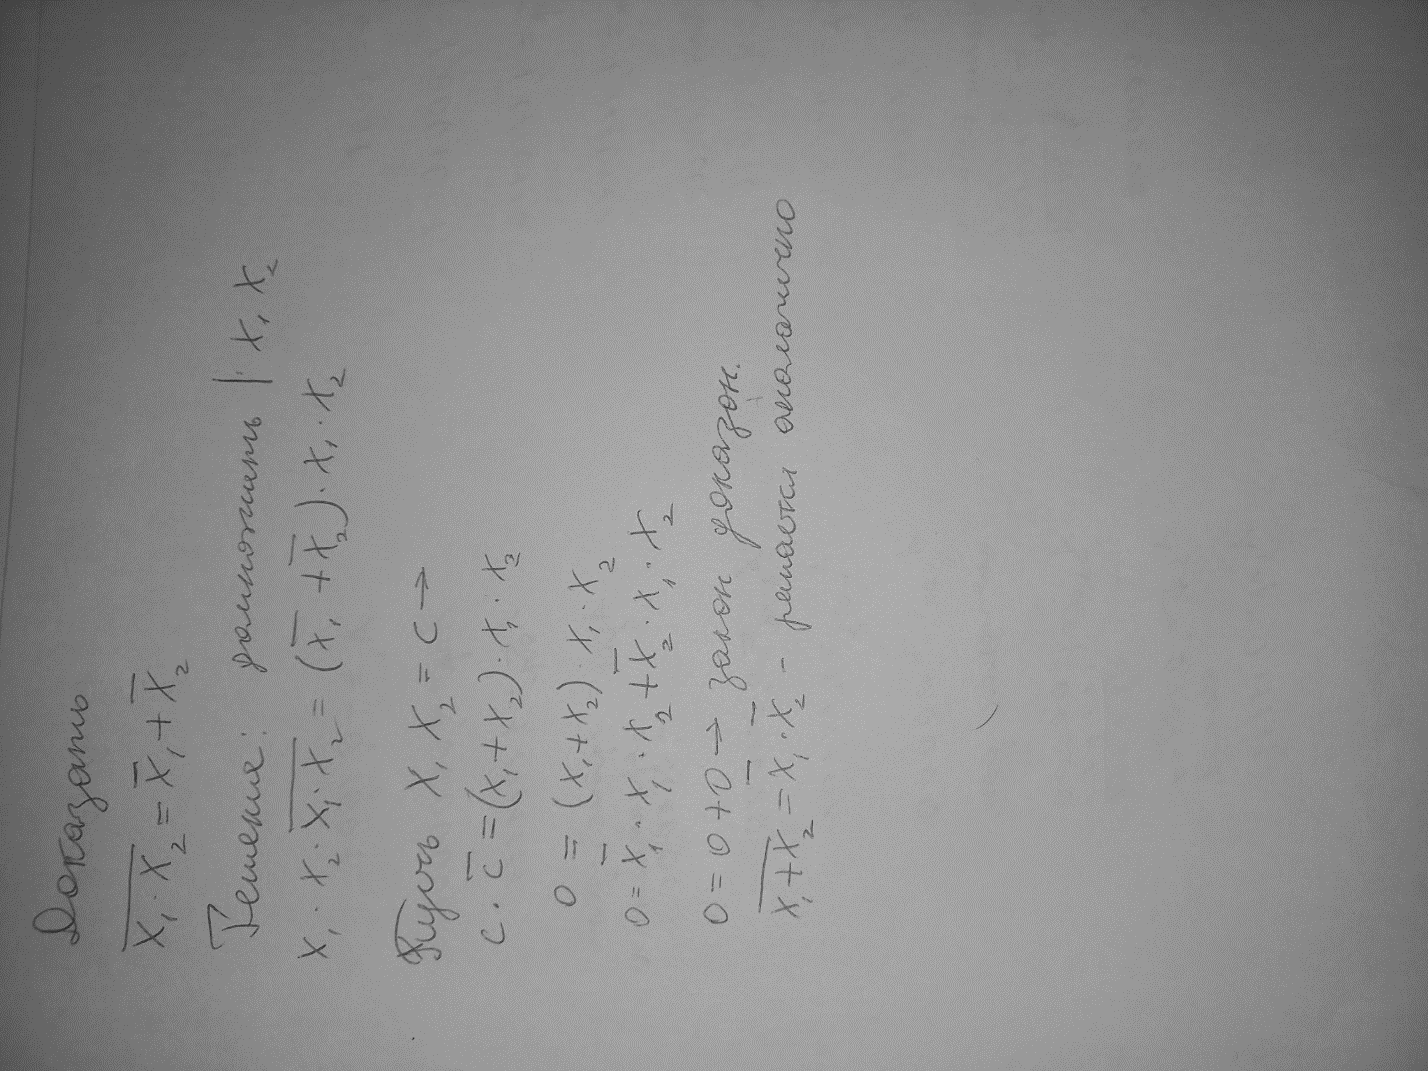 Доказать
x̅₁̅ ̅·̅ ̅x̅₂̅ = x̅₁ + x̅₂
Решение: домножить | x₁ x₂
x₁ · x₂ · x̅₁̅ ̅·̅ ̅x̅₂̅ = (x̅₁ + x̅₂) · x₁ · x₂
Пусть x₁ x₂ = c →
c · c̅ = (x₁ + x₂) · x₁ · x₂
0 = (x₁ + x₂) · x₁ · x₂
0 = x̅₁ · x₁ · x₂ + x̅₂ · x₁ · x₂
0 = 0 + 0 → закон доказан.
x̅₁̅ ̅+̅ ̅x̅₂̅ = x̅₁ · x̅₂ - решается аналогично